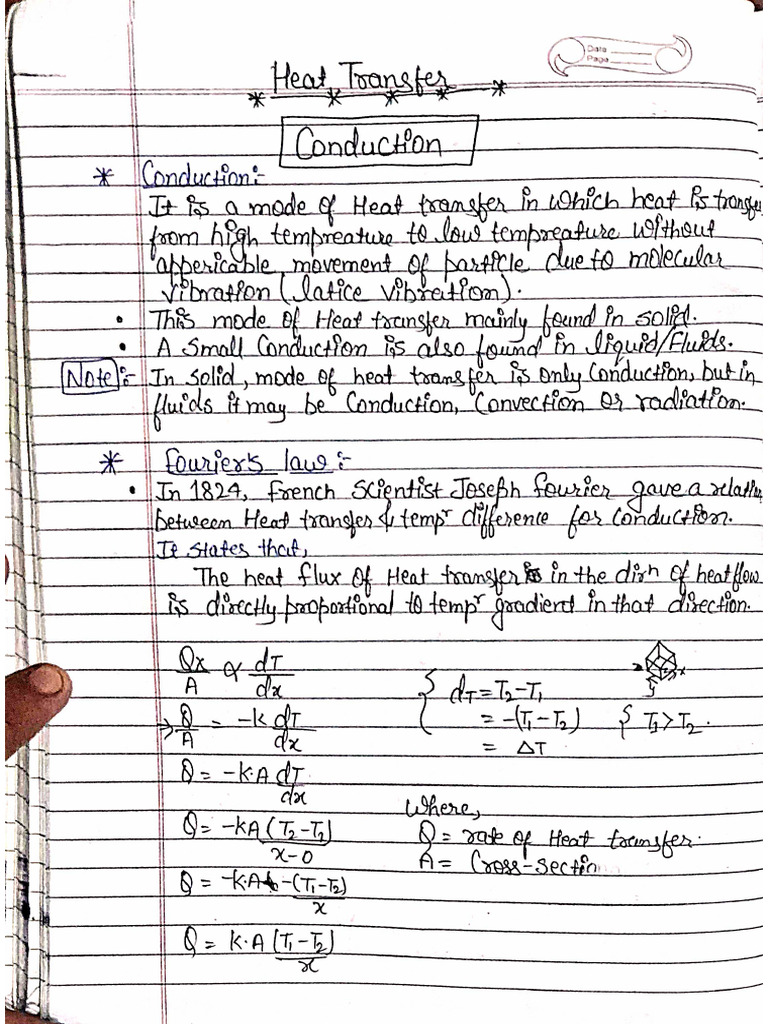 Date
Page
Heat Transfer
* * * * *
Conduction
* Conduction:-
It is a mode of Heat transfer in which heat is transfer
from high tempreature to low tempreature without
appericable movement of particle due to molecular
vibration (latice vibration).
• This mode of Heat transfer mainly found in solid.
• A small Conduction is also found in liquid/fluids.
Note:- In solid, mode of heat transfer is only Conduction, but in
fluids it may be Conduction, Convection or radiation.
* Fourier's law:-
• In 1824, French Scientist Joseph Fourier gave a relation
between Heat transfer & tempʳ difference for Conduction.
It states that,
The heat flux of Heat transfer in the dirn of heat flow
is directly proportional to tempʳ gradient in that direction.
Qx/A ∝ dT/dx { dT = T2-T1
→ Q/A = -k dT/dx = -(T1-T2) { T1>T2.
= ΔT
Q = -K.A dT/dx
Where,
Q = -kA (T2-T1)/x-0 Q = rate of Heat transfer.
A = Cross-sectin
Q = -K.A -(T1-T2)/x
Q = K.A (T1-T2)/x